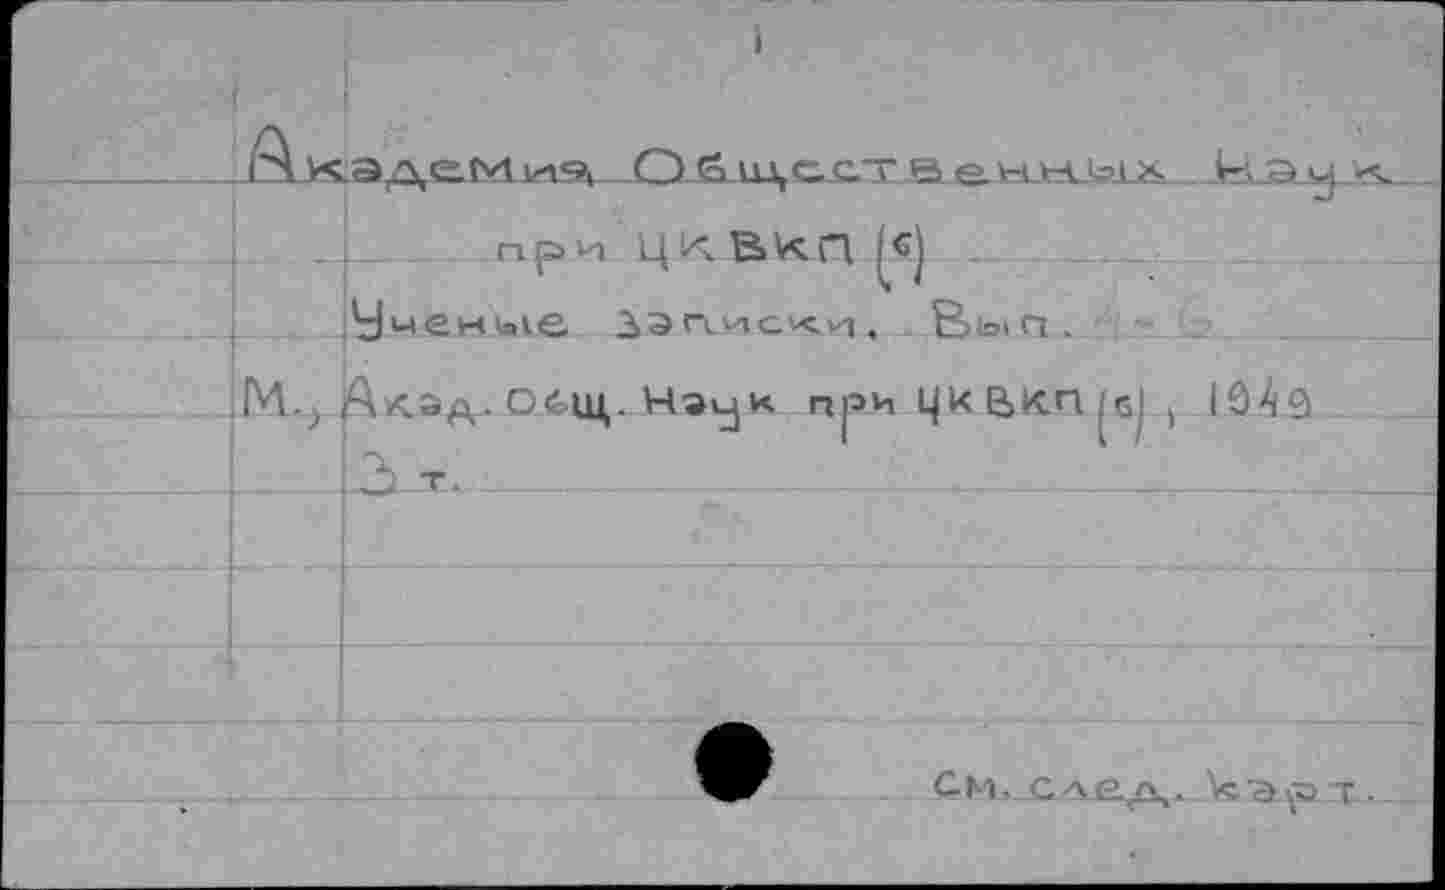 1
Академия Общественных Наук
при ЦК ВКП(б)
Ученые записки. Вып.
М., Акад. Общ. Наук при ЦК ВКП(б), 1949
3 т.
См. след. карт.